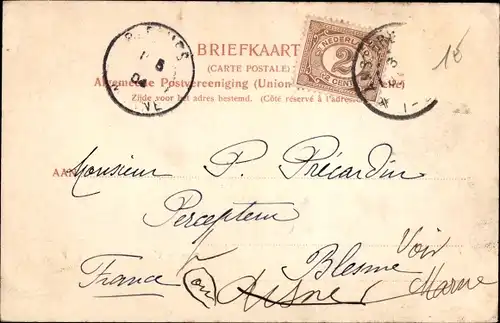 1E
BRIEFKAART
(CARTE POSTALE)
Algemeene Postvereeniging (Union
Zijde voor het adres bestemd. (Côté réservé à l'adresse
NEDERLAND
2
CENT
AMSTERD
AAN
Monsieur P. Précardin
Percepteur
Blesme Voir
France (ou) Aisne, Marne